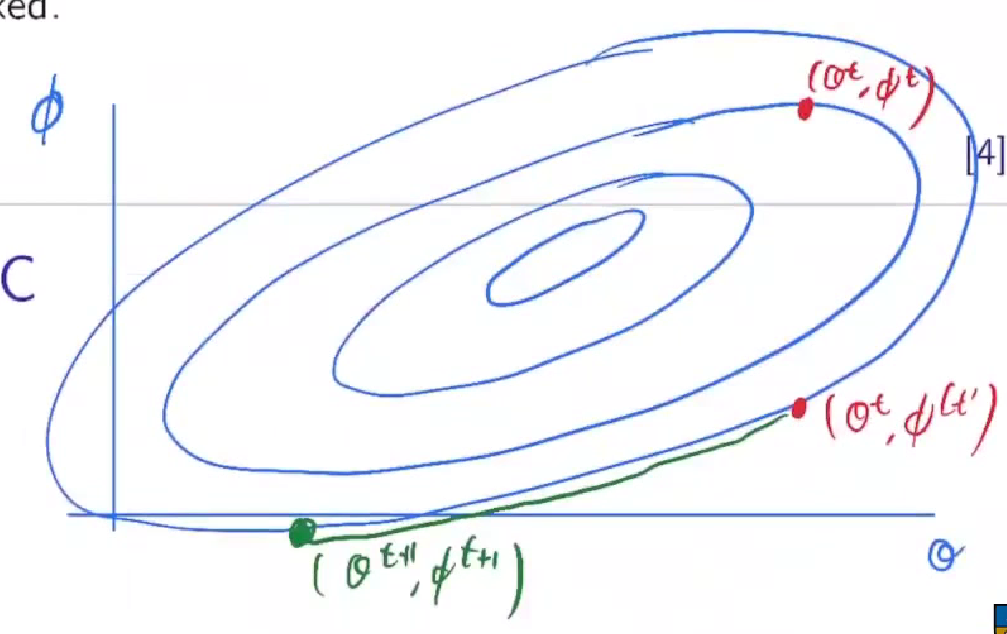 ked.
ϕ
(θᵗ, ϕᵗ)
[4]
C
(θᵗ, ϕ⁽ᵗ'⁾)
(θᵗ⁺¹, ϕᵗ⁺¹)
θ